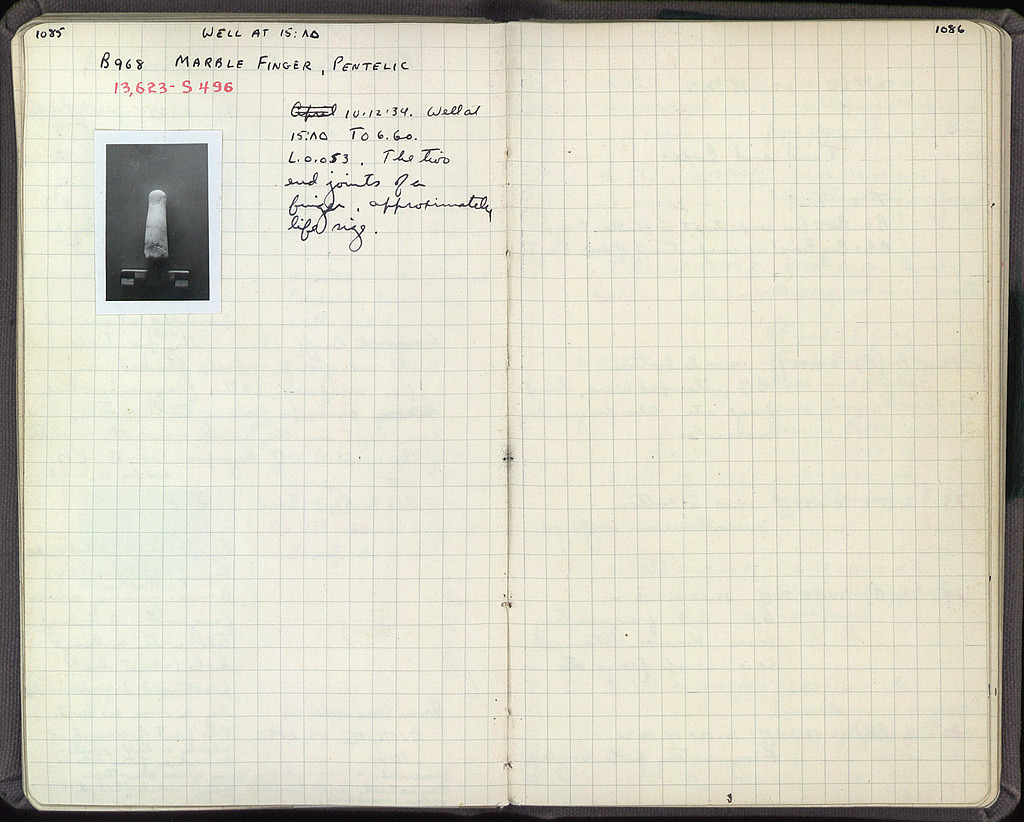 1085
WELL AT 15:ΛΔ
B968 MARBLE FINGER, PENTELIC
13,623- S 496
April 10·12·34. Well at
15:ΛΔ TO 6.60.
L.0.053. The two
end joints of a
finger, approximately
life size.
1086